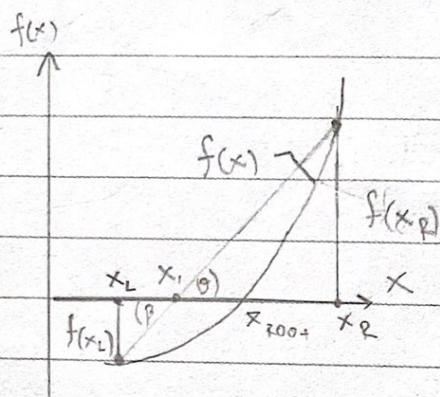 f(x)
f(x)
f(x_R)
x_L x_1 θ) x
(β
f(x_L)
x_root x_R